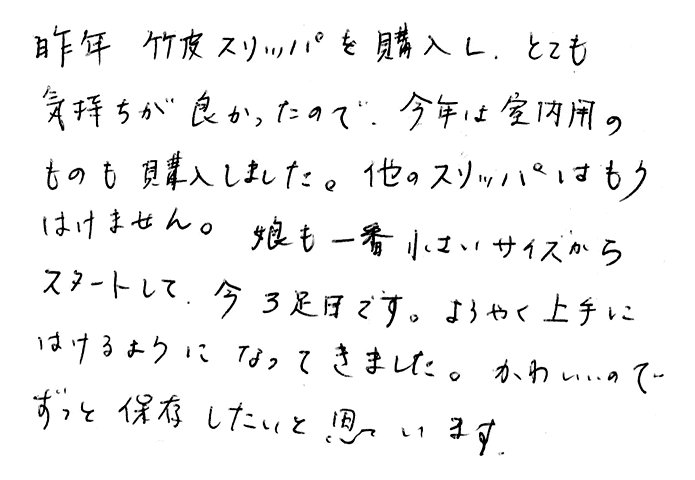 昨年 竹皮スリッパを購入し、とても
気持ちが良かったので、今年は室内用の
ものも購入しました。他のスリッパはもう
はけません。娘も一番小さいサイズから
スタートして、今3足目です。ようやく上手に
はけるようになってきました。かわいいので
ずっと保存したいと思っています。